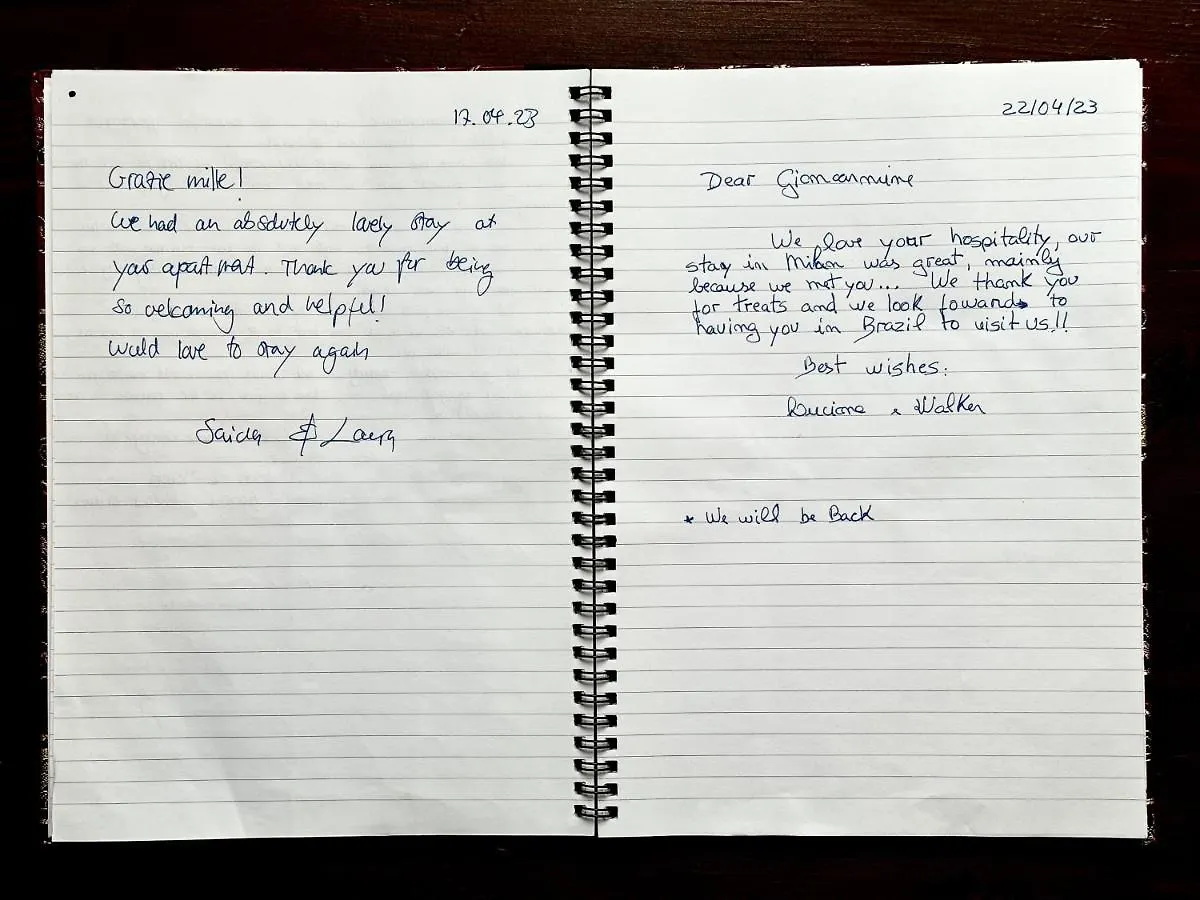 17.04.23
Grazie mille!
We had an absolutely lovely stay at
your apartment. Thank you for being
so welcoming and helpful!
Would love to stay again
Saida & Laura
22/04/23
Dear Giancarmine
We love your hospitality, our
stay in Milan was great, mainly
because we met you... We thank you
for treats and we look fowards to
having you in Brazil to visit us!!
Best wishes:
Luciana & Walker
* We will be Back